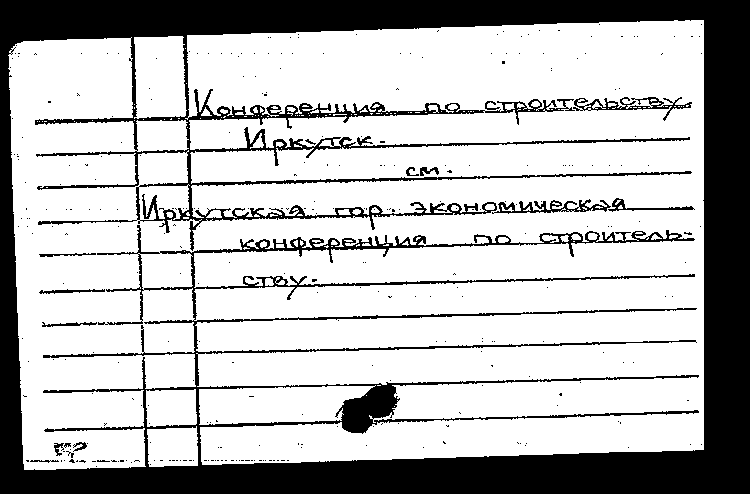 Конференция по строительству.
Иркутск.
см.
Иркутская гор. экономическая
конференция по строитель-
ству.